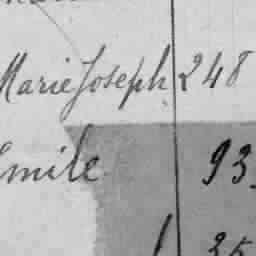 Marie Joseph 248
Emile 93
35